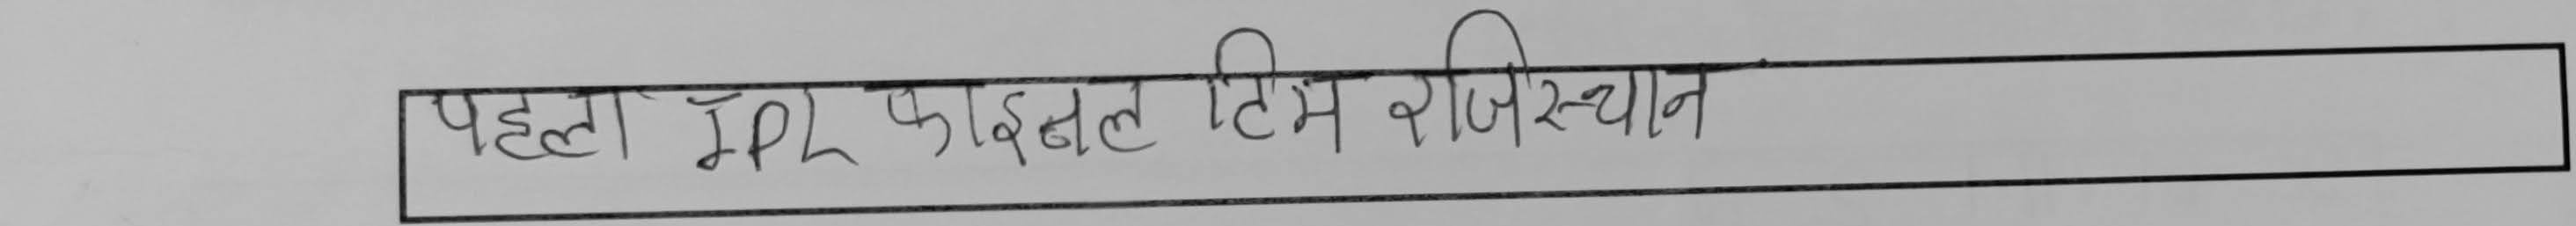 पहला IPL फाइनल टिम राजिस्थान